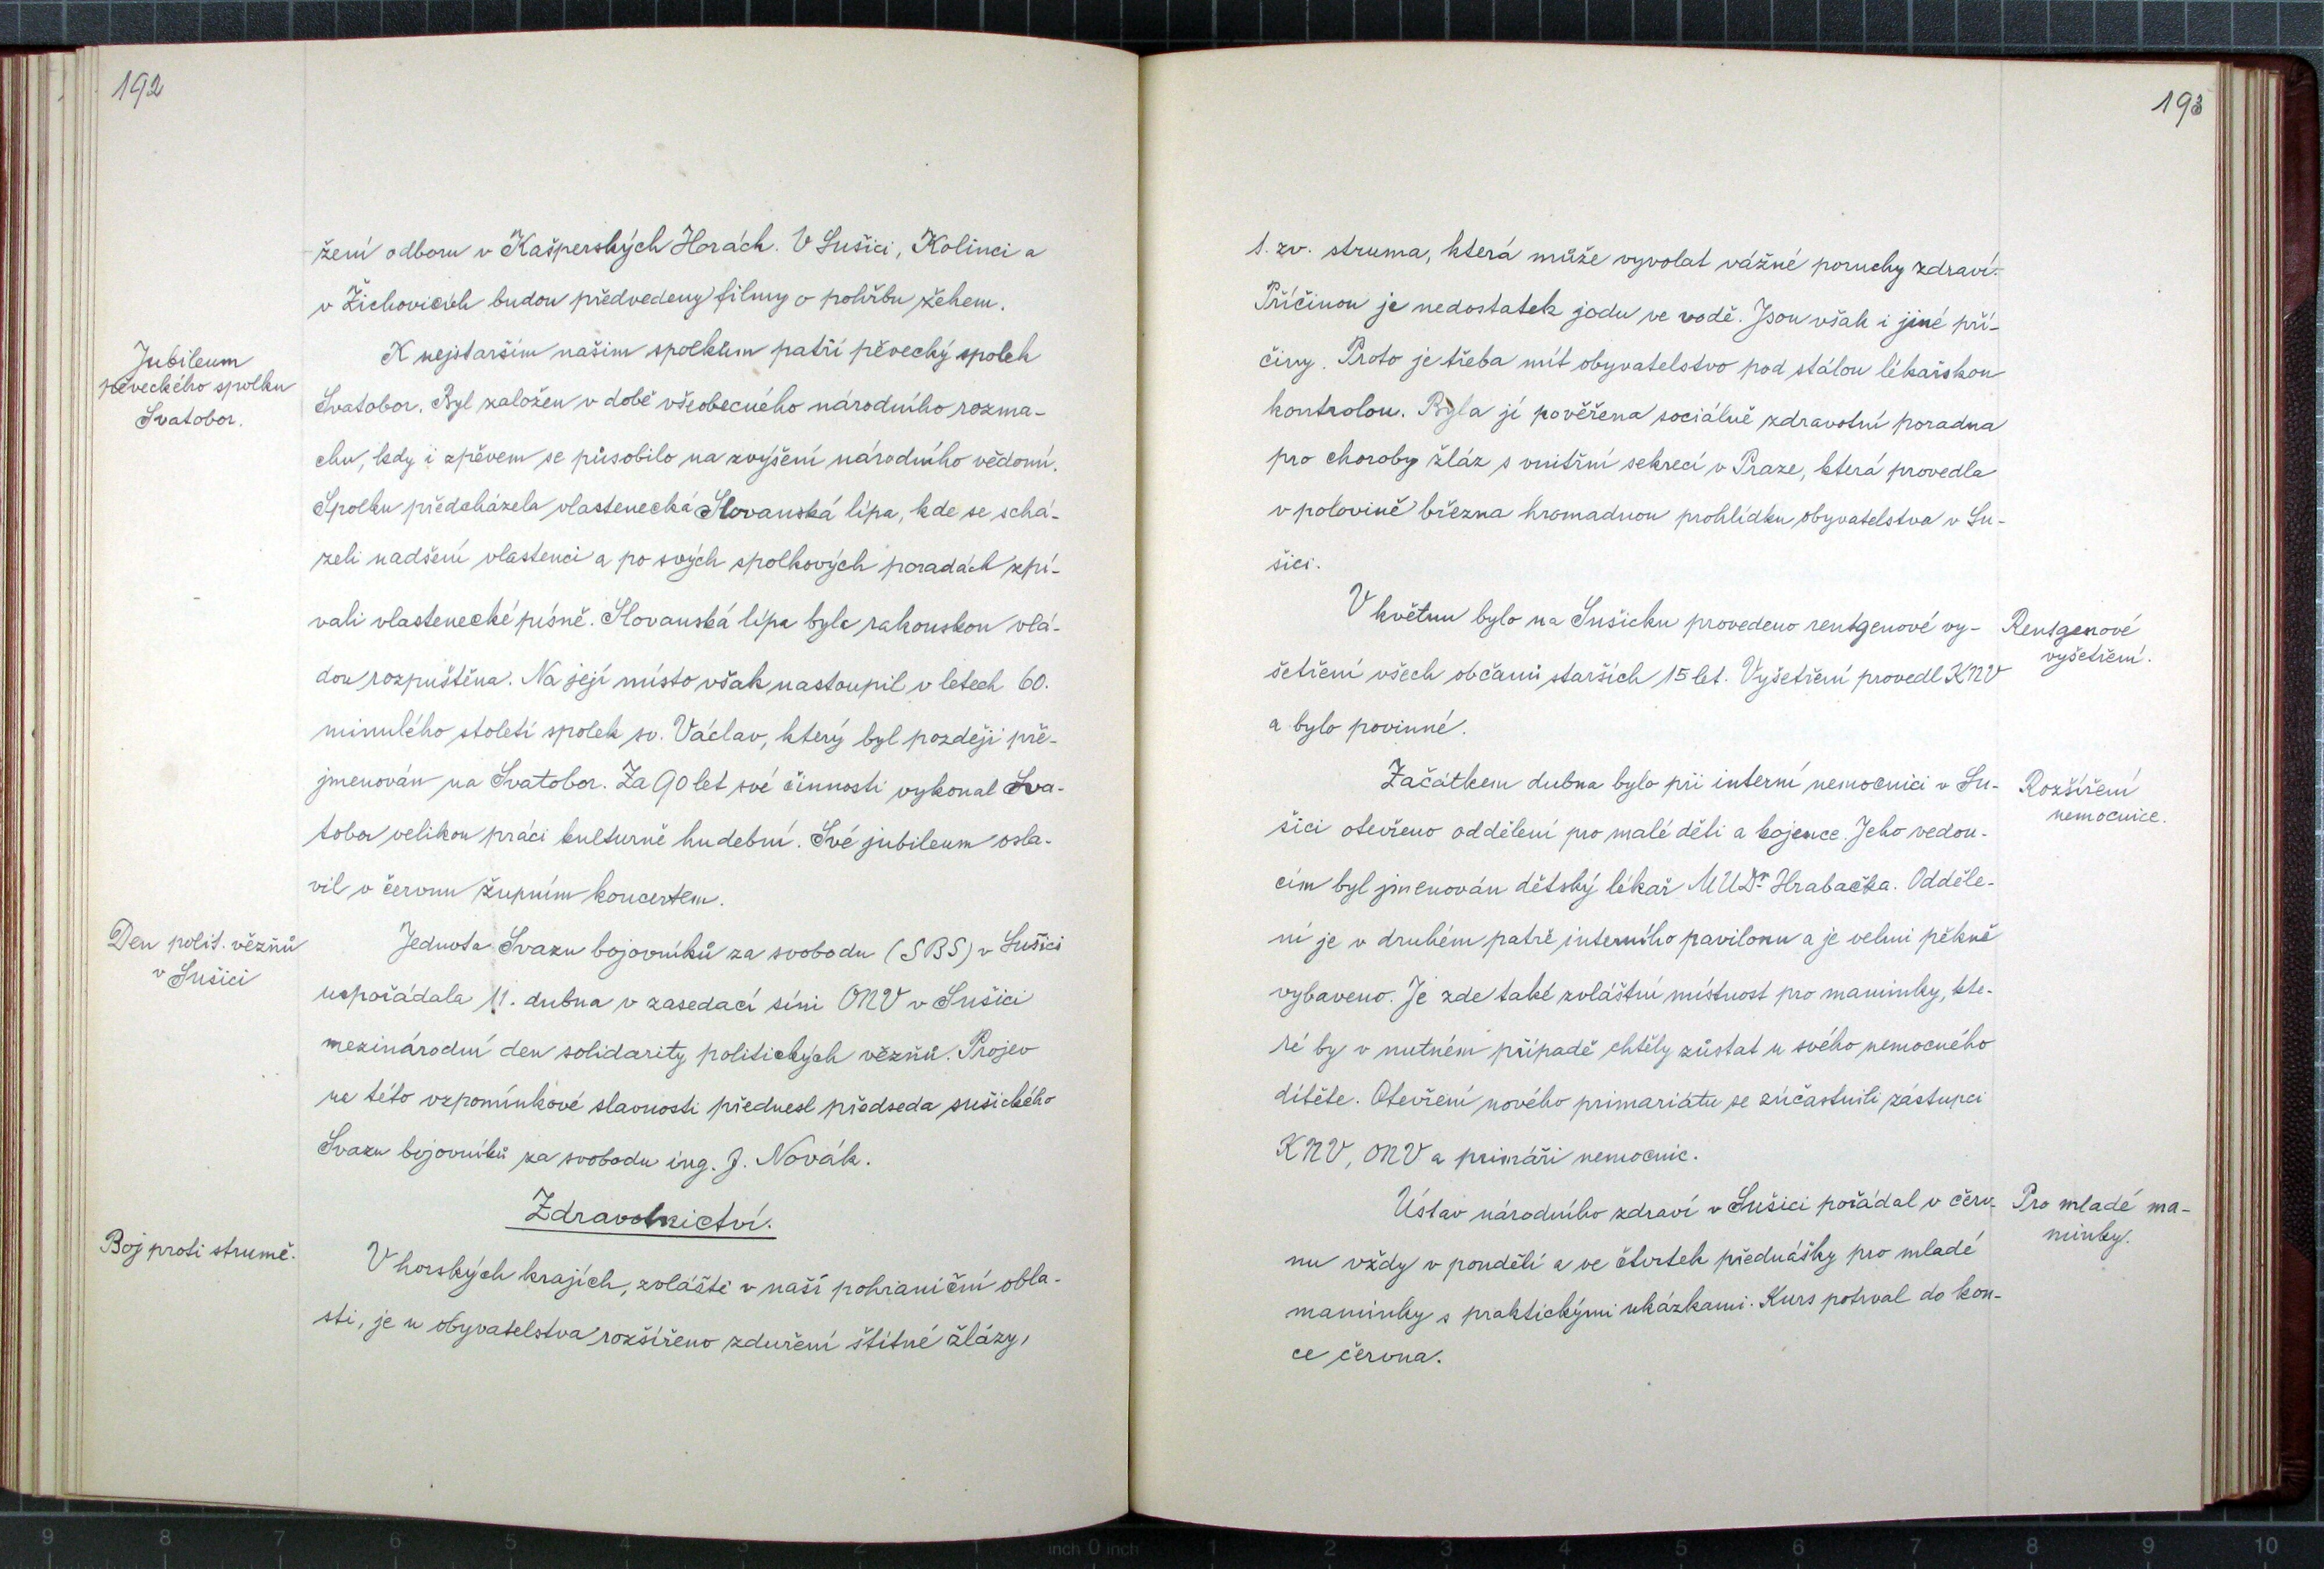 192
žení odboru v Kašperských Horách. V Sušici, Kolinci a
v Žichovicích budou předvedeny filmy o pohřbu žehem.
Jubileum
pěveckého spolku
Svatobor.
K nejstarším našim spolkům patří pěvecký spolek
Svatobor. Byl založen v době všeobecného národního rozma-
chu, kdy i zpěvem se působilo na zvýšení národního vědomí.
Spolku předcházela vlastenecká Slovanská lípa, kde se schá-
zeli nadšení vlastenci a po svých spolkových poradách zpí-
vali vlastenecké písně. Slovanská lípa byla rakouskou vlá-
dou rozpuštěna. Na její místo však nastoupil v letech 60.
minulého století spolek sv. Václav, který byl později pře-
jmenován na Svatobor. Za 90 let své činnosti vykonal Sva-
tobor velikou práci kulturně hudební. Své jubileum osla-
vil v červnu župním koncertem.
Den polit. vězňů
v Sušici
Jednota Svazu bojovníků za svobodu (SBS) v Sušici
uspořádala 11. dubna v zasedací síni ONV v Sušici
mezinárodní den solidarity politických vězňů. Projev
na této vzpomínkové slavnosti přednesl předseda sušického
Svazu bojovníků za svobodu ing. J. Novák.
Zdravotnictví.
Boj proti strumě.
V horských krajích, zvláště v naší pohraniční obla-
sti, je u obyvatelstva rozšířeno zduření štítné žlázy,
193
t. zv. struma, která může vyvolat vážné poruchy zdraví.
Příčinou je nedostatek jodu ve vodě. Jsou však i jiné pří-
činy. Proto je třeba mít obyvatelstvo pod stálou lékařskou
kontrolou. Byla jí pověřena sociálně zdravotní poradna
pro choroby žláz s vnitřní sekrecí v Praze, která provedla
v polovině března hromadnou prohlídku obyvatelstva v Su-
šici.
V květnu bylo na Sušicku provedeno rentgenové vy-
šetření všech občanů starších 15 let. Vyšetření provedl KNV
a bylo povinné.
Rentgenové
vyšetření.
Začátkem dubna bylo při interní nemocnici v Su-
šici otevřeno oddělení pro malé děti a kojence. Jeho vedou-
cím byl jmenován dětský lékař MUDr Hrabačka. Odděle-
ní je v druhém patře interního pavilonu a je velmi pěkně
vybaveno. Je zde také zvláštní místnost pro maminky, kte-
ré by v nutném případě chtěly zůstat u svého nemocného
dítěte. Otevření nového primariátu se zúčastnili zástupci
KNV, ONV a primáři nemocnic.
Rozšíření
nemocnice.
Ústav národního zdraví v Sušici pořádal v červ-
nu vždy v pondělí a ve čtvrtek přednášky pro mladé
maminky s praktickými ukázkami. Kurs potrval do kon-
ce června.
Pro mladé ma-
minky.
9 8 7 6 5 4 3 2 1 inch 0 inch 1 2 3 4 5 6 7 8 9 10